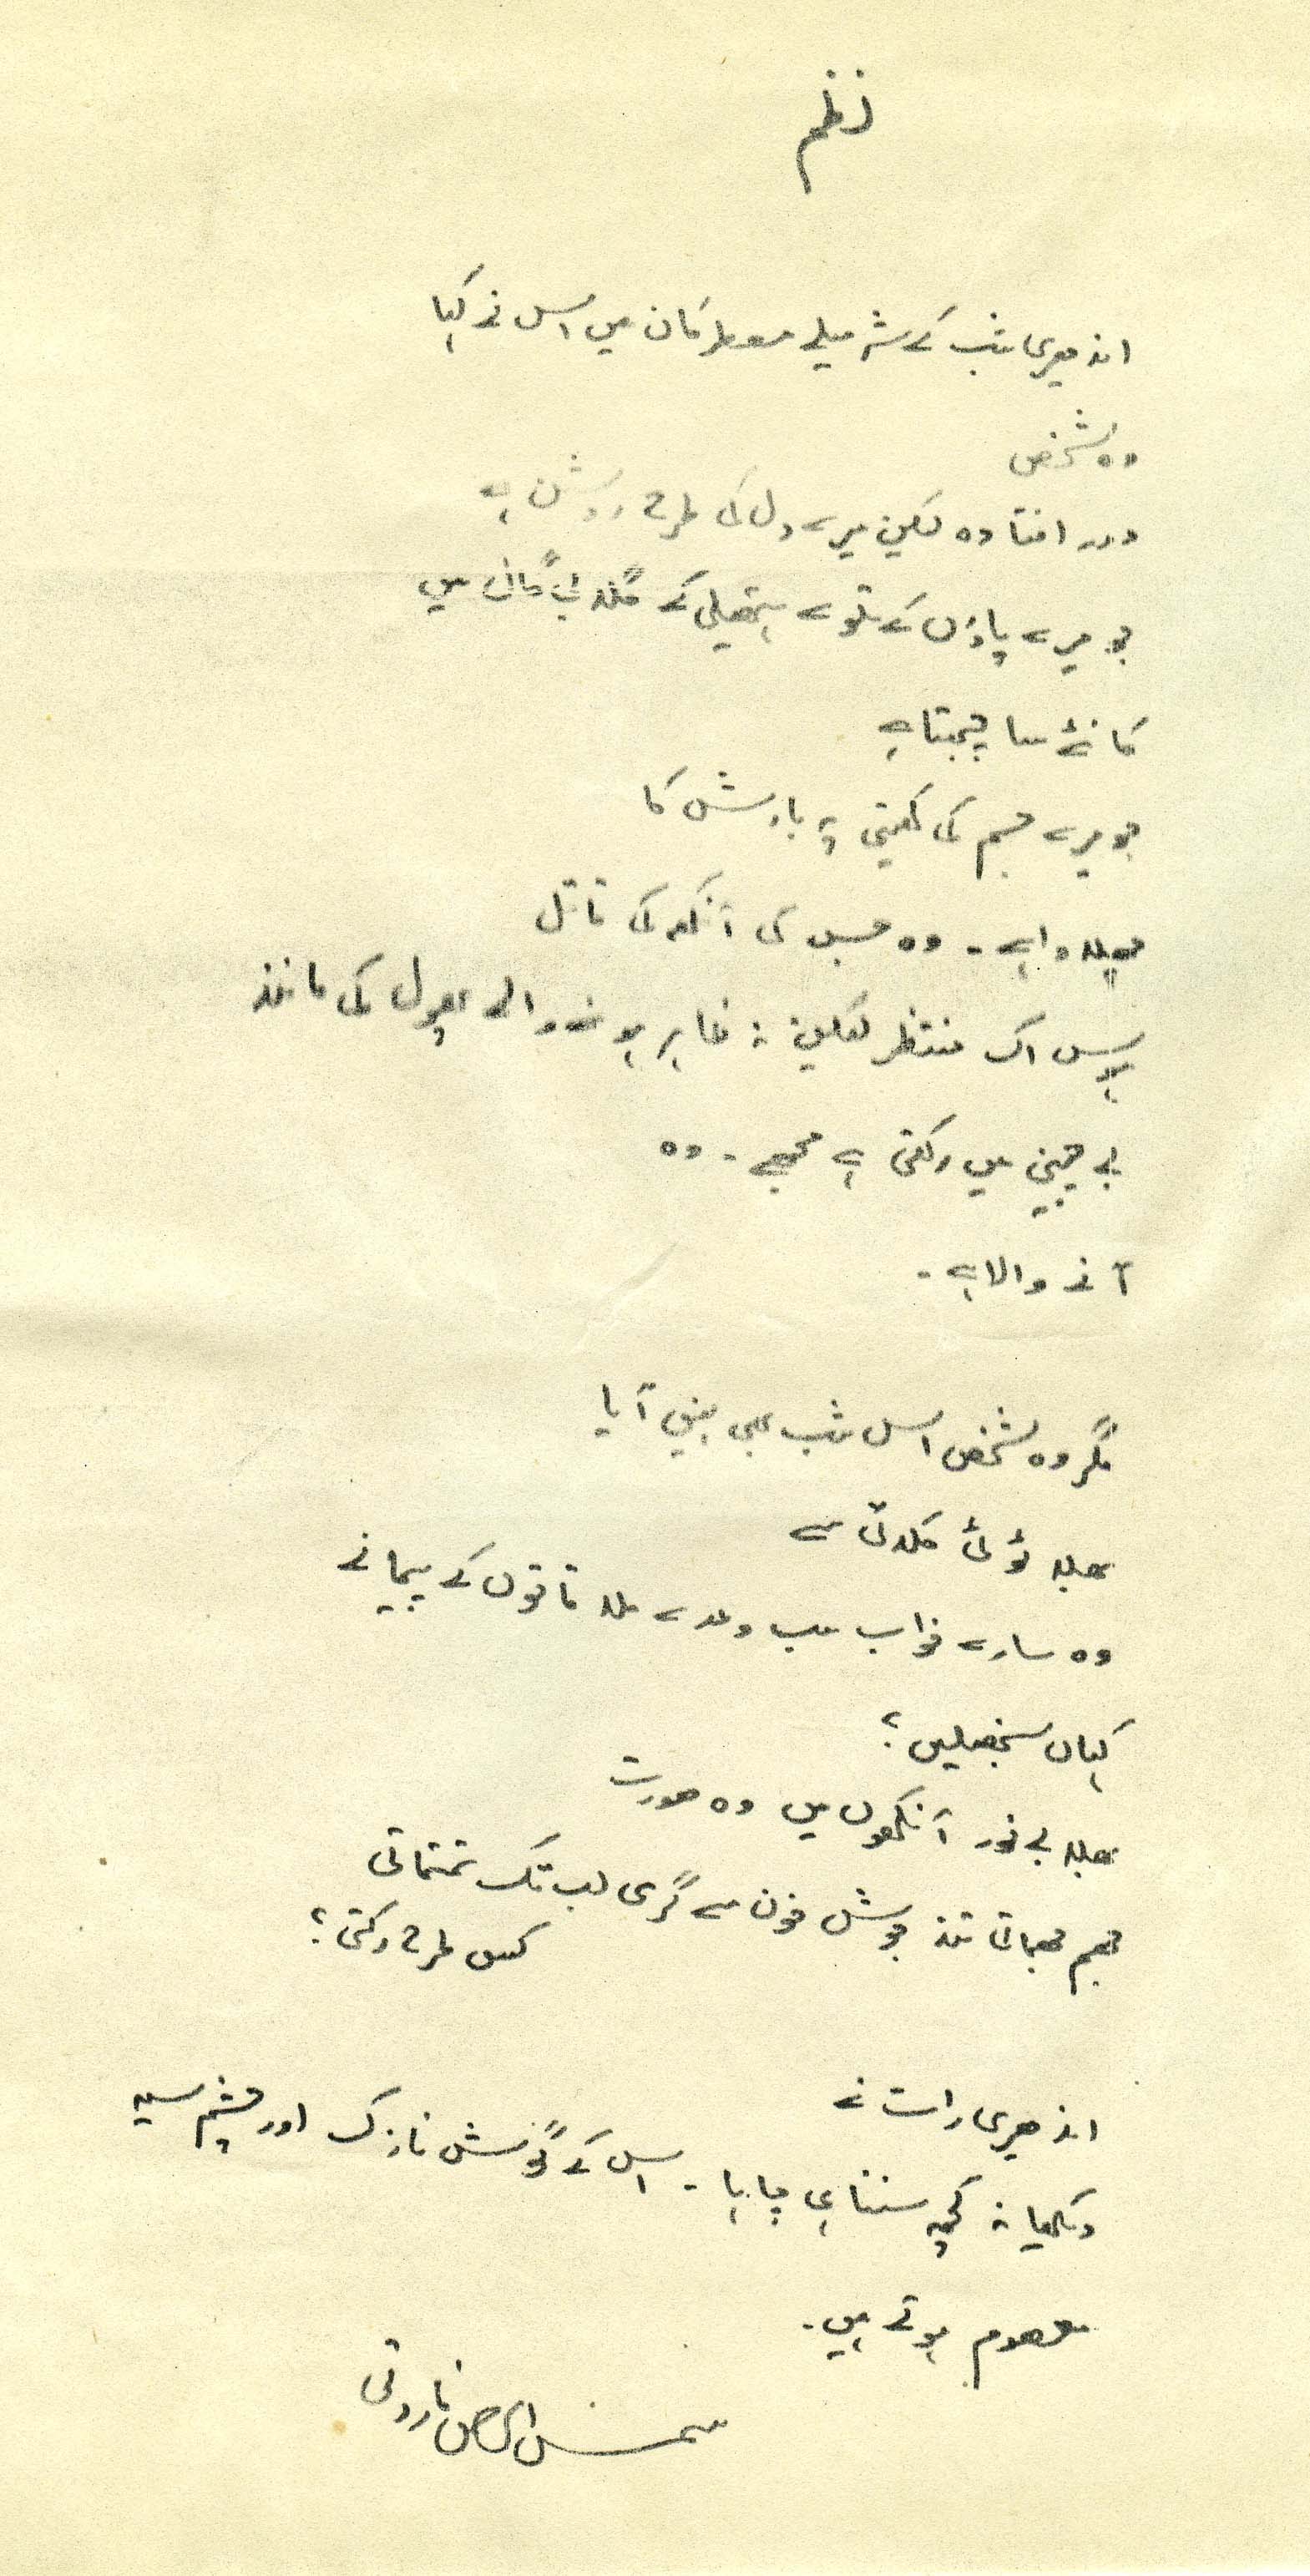 نظم
اندھیری شب کے شرمیلے معطر کان میں اس نے کہا
وہ شخص
دور افتادہ لیکن میرے دل کی طرح روشن ہے
جو میرے پاؤں کے تلوے ہتھیلی کے گلابی گال میں
کانٹے سا چبھتا ہے
جو میرے جسم کی کھیتی پہ بارش کا
چھلاوا ہے۔ وہ جس کی آنکھ کی قاتل
ہوس اک منتظر لیکن نہ ظاہر ہونے والے پھول کی مانند
بے چینی میں رکھتی ہے مجھے۔ وہ
آنے والا ہے۔
مگر وہ شخص اس شب بھی نہیں آیا
بھلا ٹوٹی کلائی سے
وہ سارے خواب سب وعدے ملاقاتوں کے پیمانے
کہاں سنبھلیں؟
بھلا بے نور آنکھوں میں وہ صورت
جھم جھماتی تند جوش خون سے گرمی لب تک تمتماتی
کس طرح رکتی؟
اندھیری رات نے
دیکھا نہ کچھ سننا ہی چاہا۔ اس کے گوش نازک اور چشم سیہ
معصوم ہوتے ہیں۔
شمس الرحمٰن فاروقی